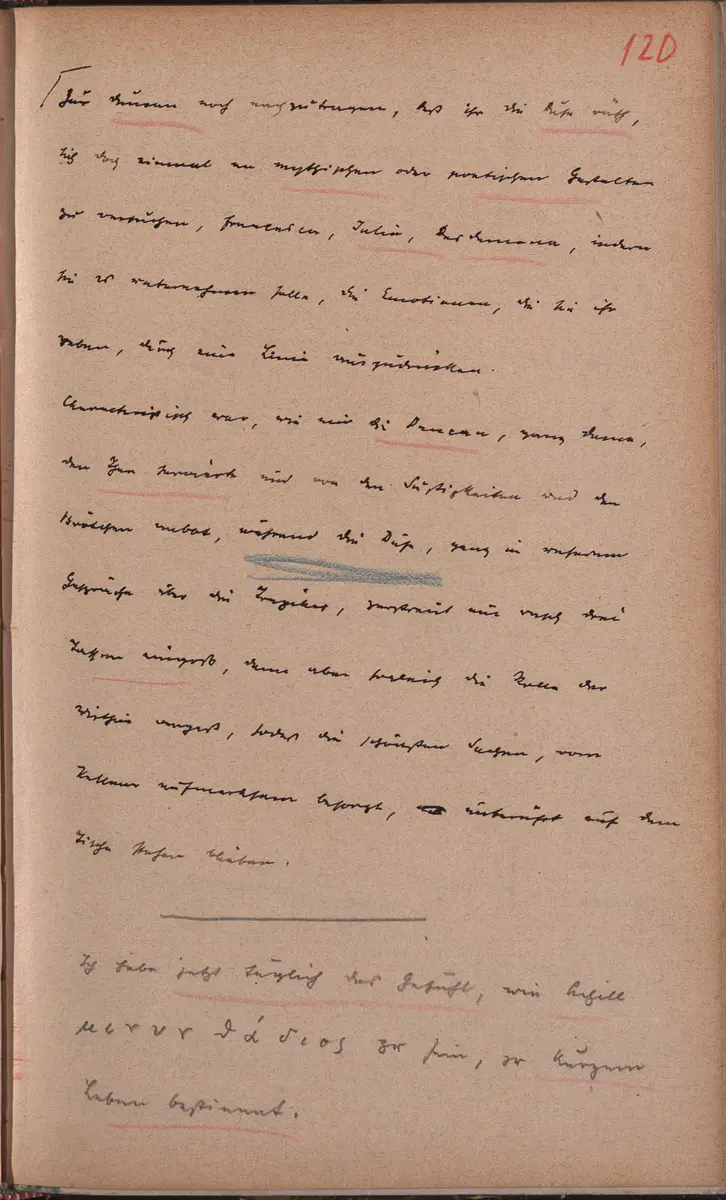 120
Zur Duncan noch nachzutragen, daß ihr die Duse räth,
sich doch einmal an mythischen oder poetischen Gestalten
zu versuchen, Francesca, Julia, Desdemona, indem
sie es unternehmen solle, die Emotionen, die sie ihr
geben, durch eine Linie auszudrücken.
Characteristisch war, wie mir die Duncan, ganz Dame,
den Thee servierte und von den Süßigkeiten und den
Brötchen anbot, während die Duse, ganz in unserem
Gespräche über die Tragiker, zerstreut nur rasch drei
Tassen eingoß, dann aber sogleich die Rolle der
Wirthin vergaß, sodaß die schönsten Sachen, vom
Kellner aufmerksam besorgt, unberührt auf dem
Tische stehen blieben.
Ich habe jetzt täglich das Gefühl, wie Achill
μινυνθάδιος zu sein, zu kurzem
Leben bestimmt.